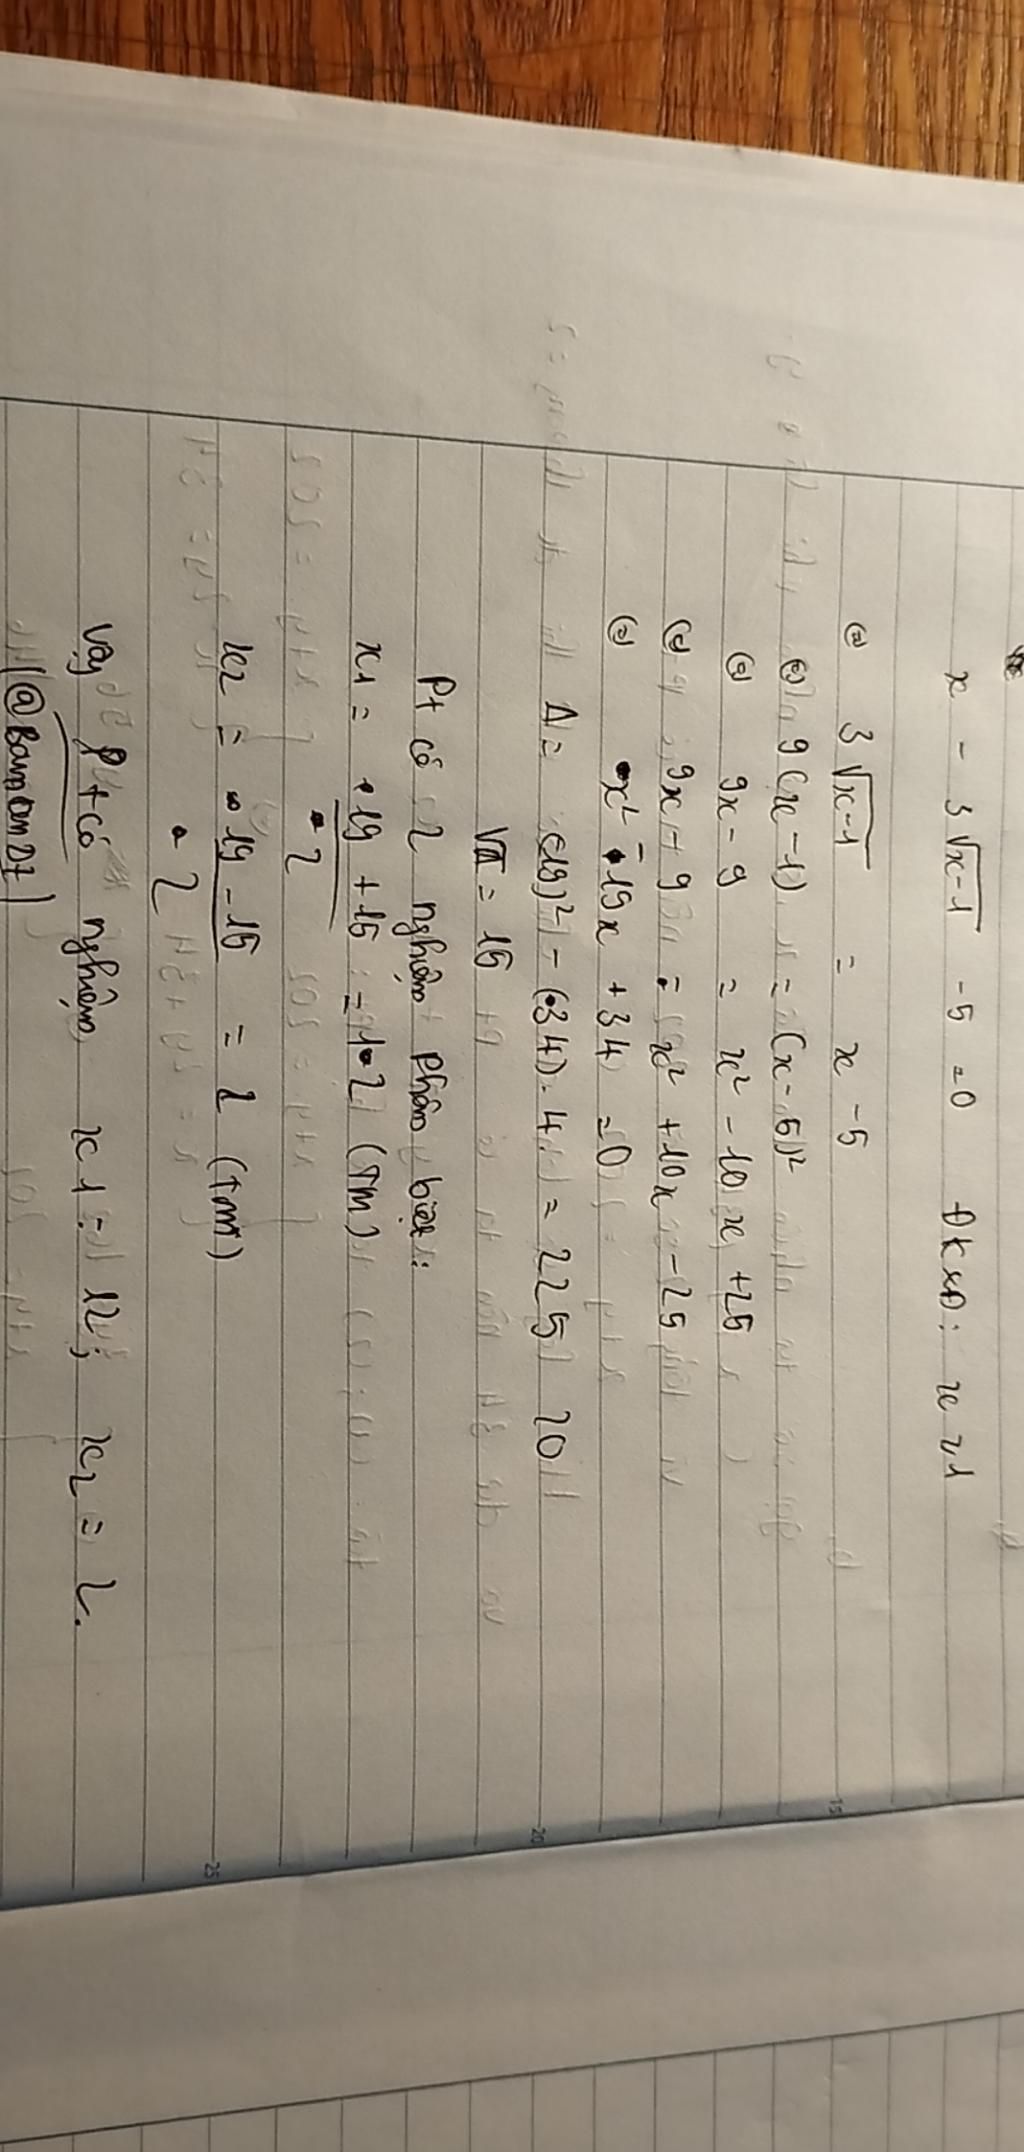 x - 3√x-1 - 5 = 0 ĐKXĐ: x ≥ 1
(=) 3√x-1 = x - 5
(=) 9(x-1) = (x-5)²
(=) 9x - 9 = x² - 10x + 25
(=) 9x - 9 = x² + 10x - 25
(=) x² - 19x + 34 = 0
Δ = (19)² - (34).4 = 225 > 0
√Δ = 15
Pt có 2 nghiệm phân biệt:
x1 = 19 + 15 = 12 (TM)
2
x2 = 19 - 15 = 2 (TM)
2
Vậy Pt có nghiệm x1 = 12; x2 = 2.
15
20
25